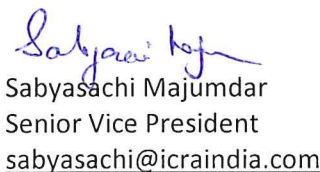 Sabyasachi Majumdar
Senior Vice President
sabyasachi@icraindia.com